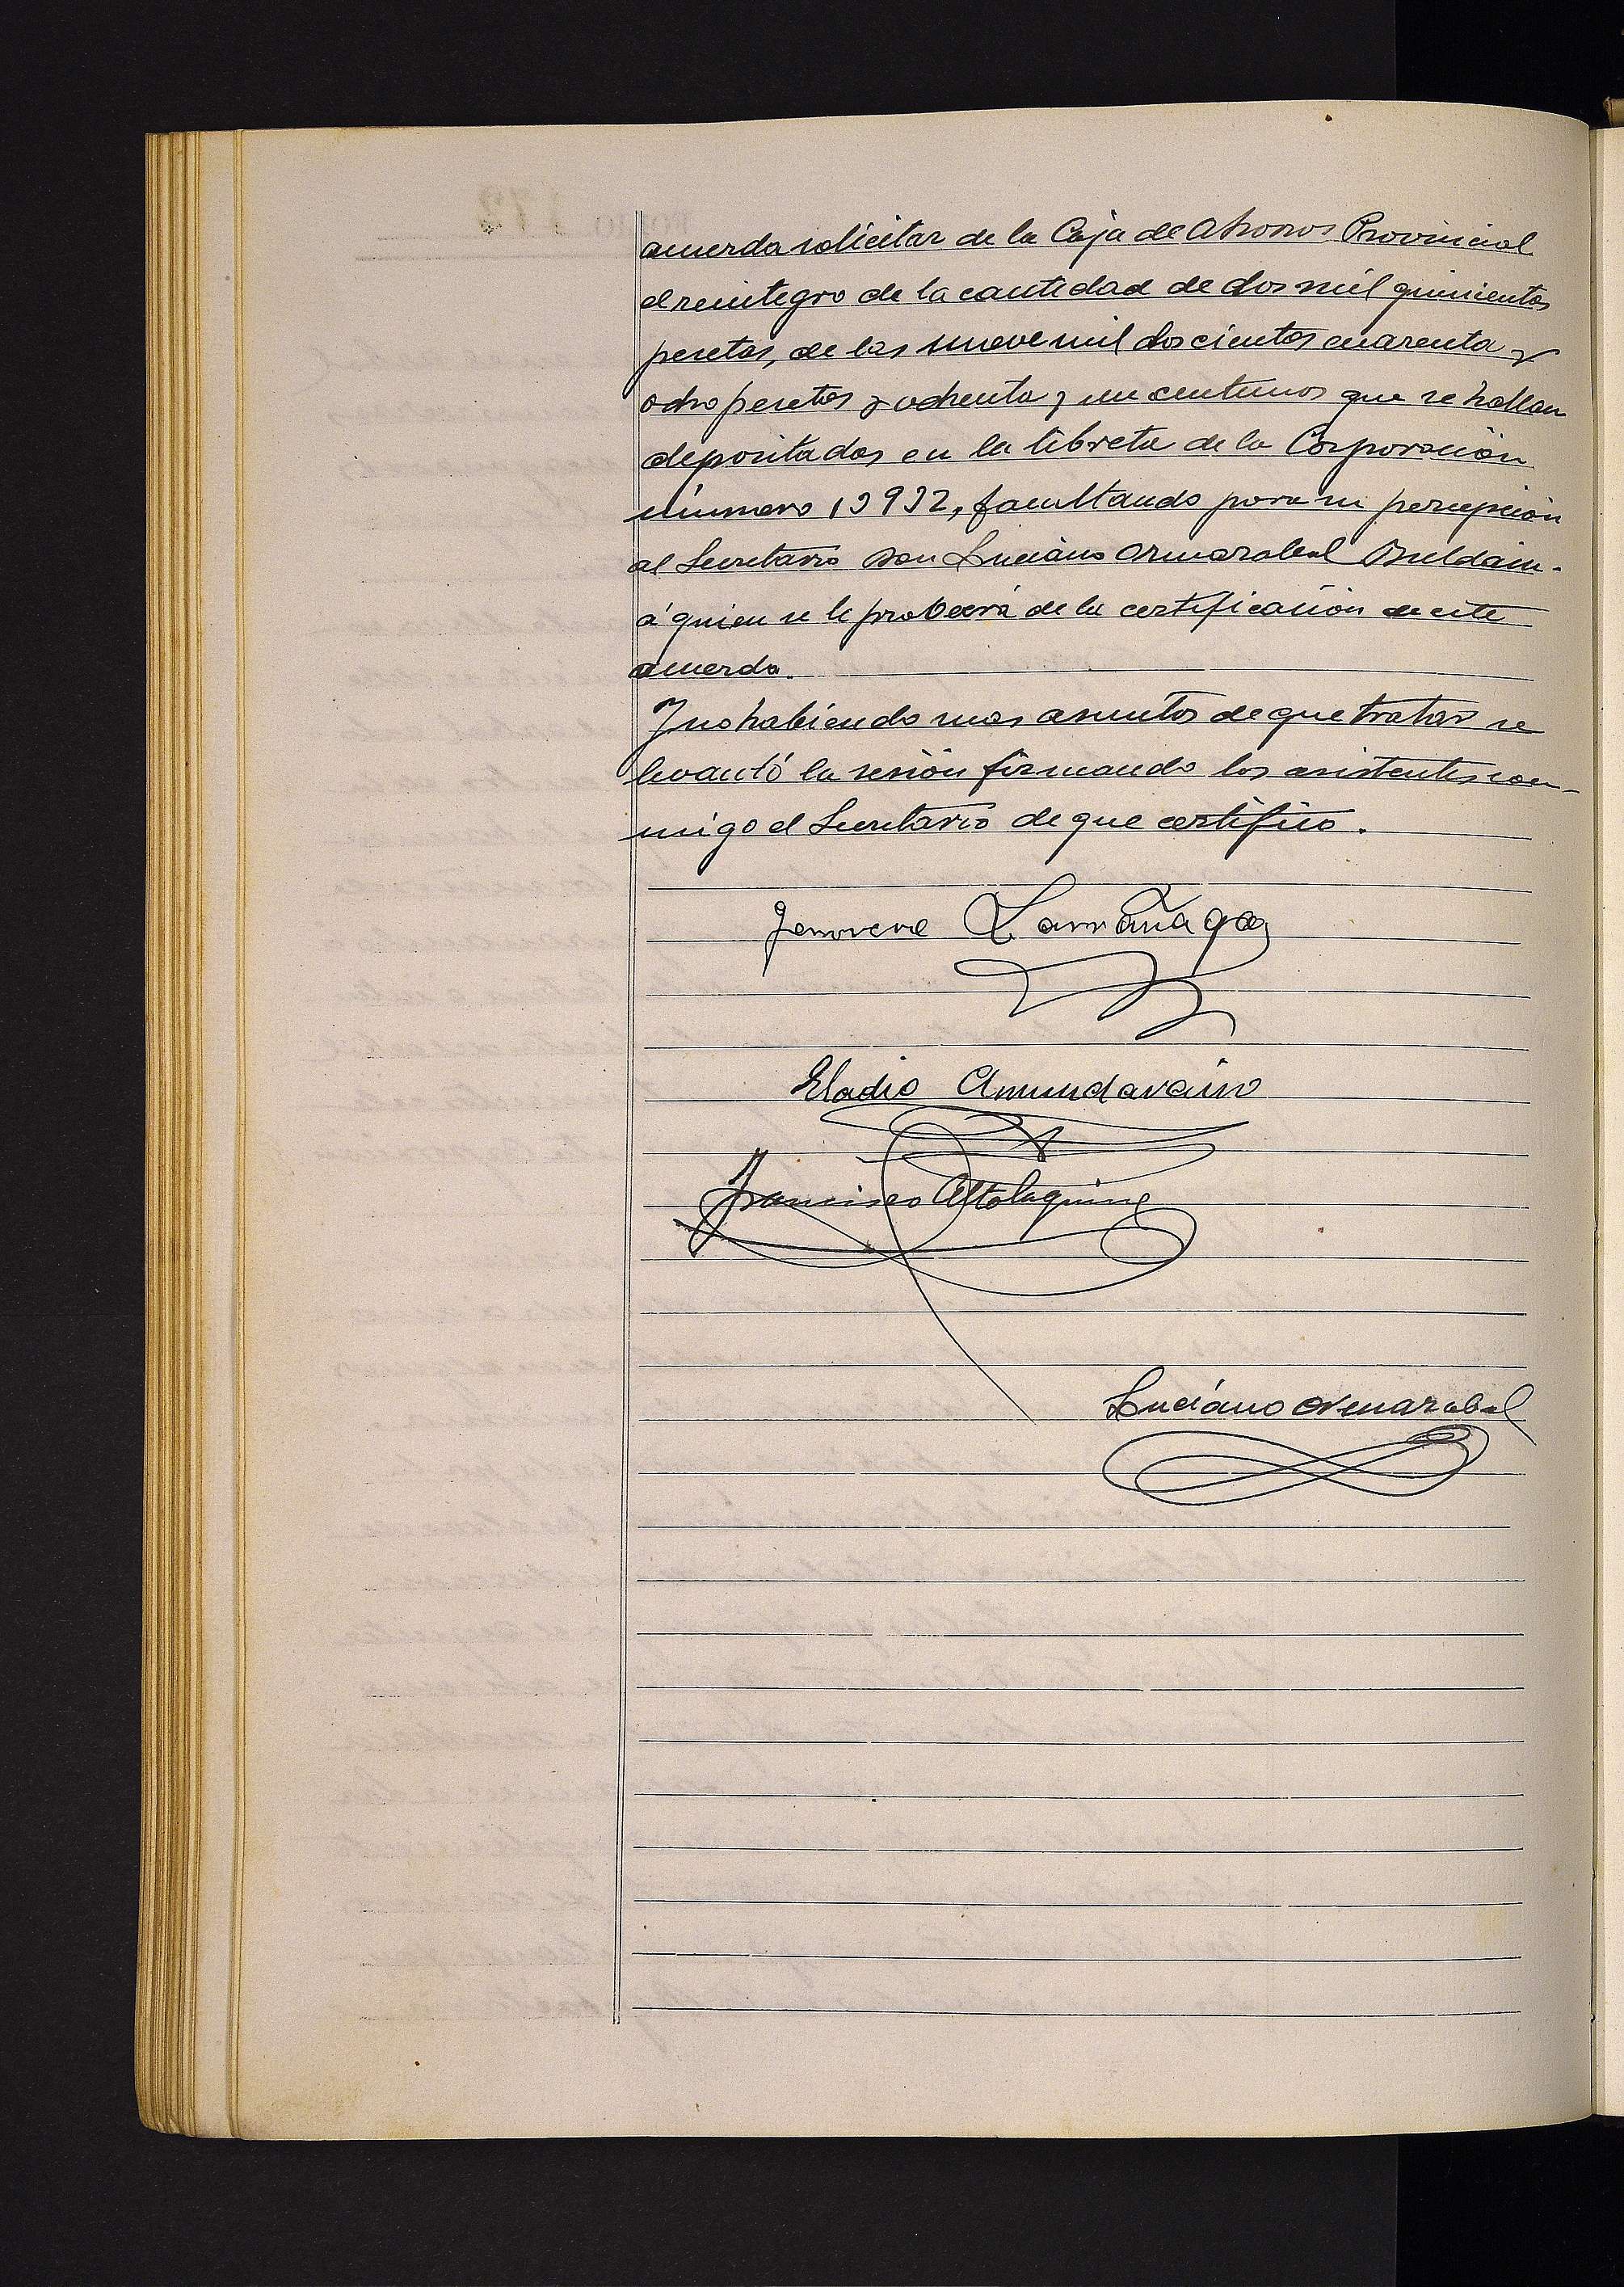 acuerda solicitar de la Caja de Ahorros Provincial
el reintegro de la cantidad de dos mil quinientas
pesetas, de las nueve mil doscientas cuarenta y
ocho pesetas y ochenta y un centimos que se hallan
depositadas en la libreta de la Corporación
número 13932, facultando para su percepción
al Secretario Don Luciano Ormazabal Buldain-
á quien se le proveerá de la certificación de este
acuerdo.
Y no habiendo mas asuntos de que tratar se
levantó la sesión firmando los asistentes con-
migo el Secretario de que certifico.
Larrañaga
Eladio Amundarain
Francisco Altolaguirre
Luciano Ormazabal